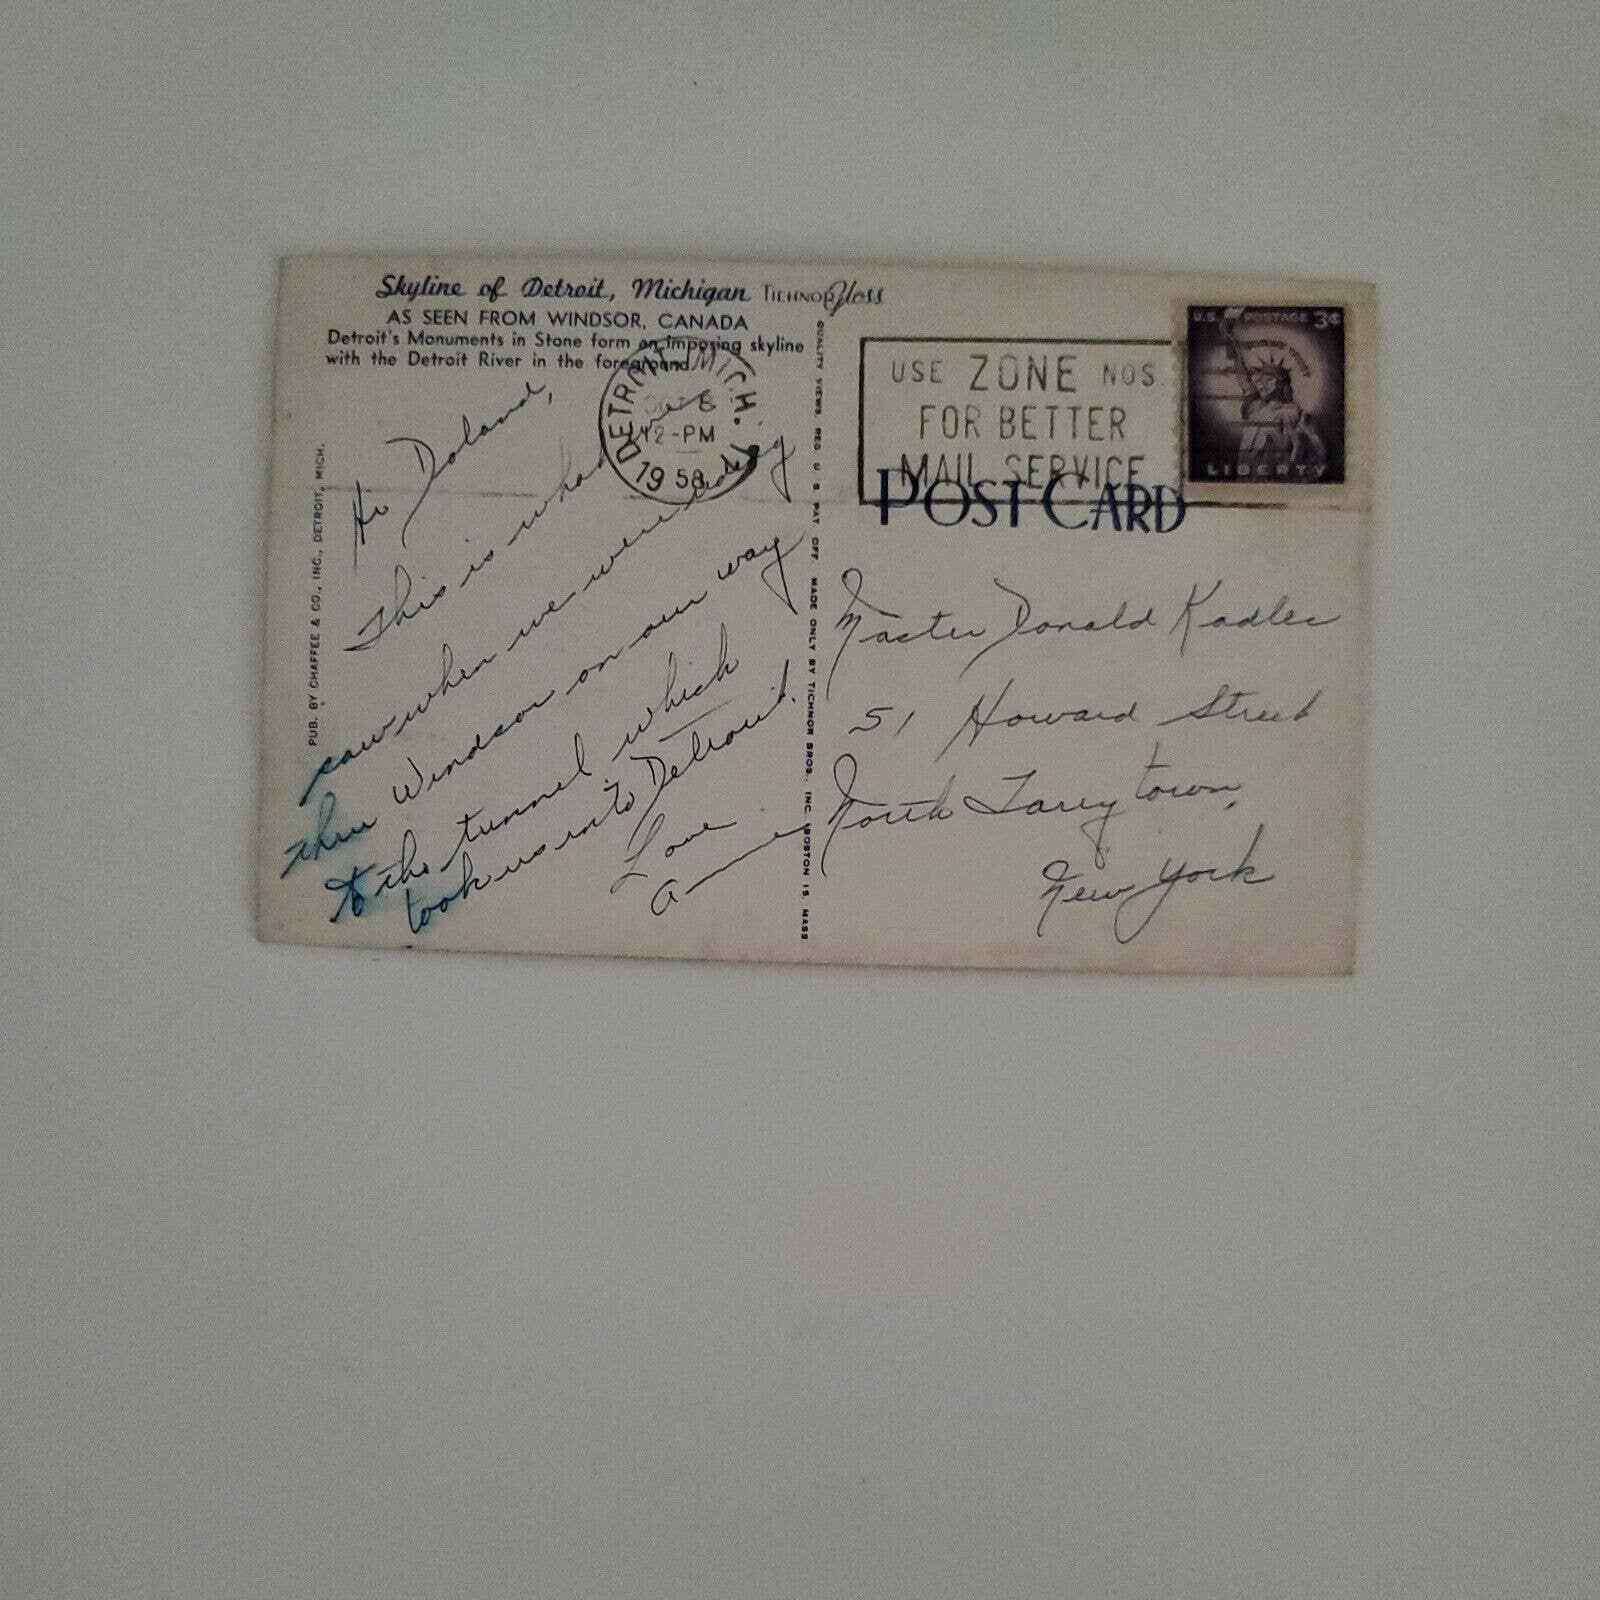 Skyline of Detroit, Michigan TICHNOR Gloss
AS SEEN FROM WINDSOR, CANADA
Detroit's Monuments in Stone form an imposing skyline
with the Detroit River in the foreground.
PUB. BY CHAFFEE & CO., INC., DETROIT, MICH.
Hi Doland,
This is what
saw when we were
thru Windsor on our way
to the tunnel which
took us into Detroit.
Love
DETROIT, MICH.
12-PM
1958
QUALITY VIEWS REG U. S. PAT OFF MADE ONLY BY TICHNOR BROS. INC BOSTON 15, MASS
USE ZONE NOS.
FOR BETTER
MAIL SERVICE
U.S. POSTAGE 3¢
IN GOD WE TRUST
LIBERTY
POST CARD
Master Donald Kadlec
51 Howard Street
North Tarrytown,
New York